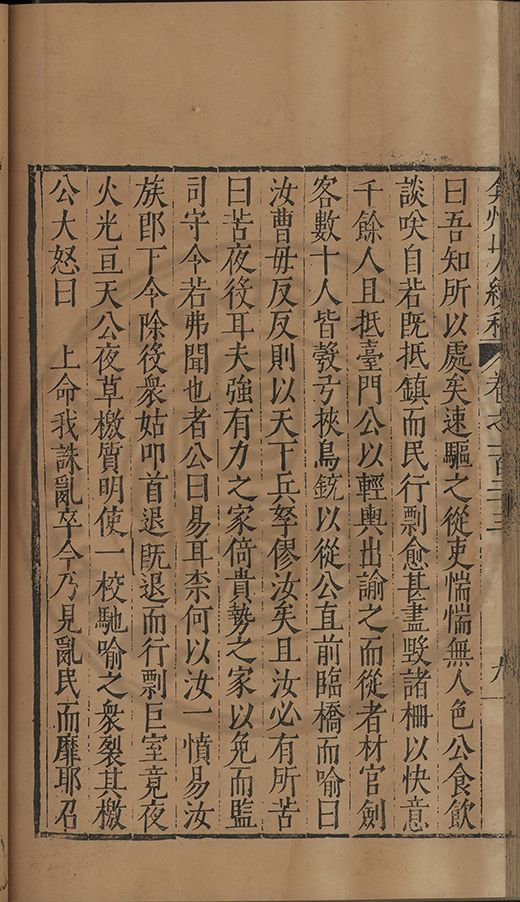 弇州山人續稿 卷之一百三十三 九
曰吾知所以處矣速驅之從吏惴惴無人色公食飲
談笑自若既抵鎮而民行剽愈甚盡毀諸柵以快意
千餘人且抵臺門公以輕輿出諭之而從者材官劍
客數十人皆彀弓挾鳥銃以從公直前臨橋而喻曰
汝曹毋反反則以天下兵孥僇汝矣且汝必有所苦
曰苦夜役耳夫強有力之家倚貴勢之家以免而監
司守令若弗聞也者公曰易耳柰何以汝一憤易汝
族即下令除役眾姑叩首退既退而行剽巨室竟夜
火光亘天公夜草檄質明使一校馳喻之眾裂其檄
公大怒曰 上命我誅亂卒今乃見亂民而靡耶召